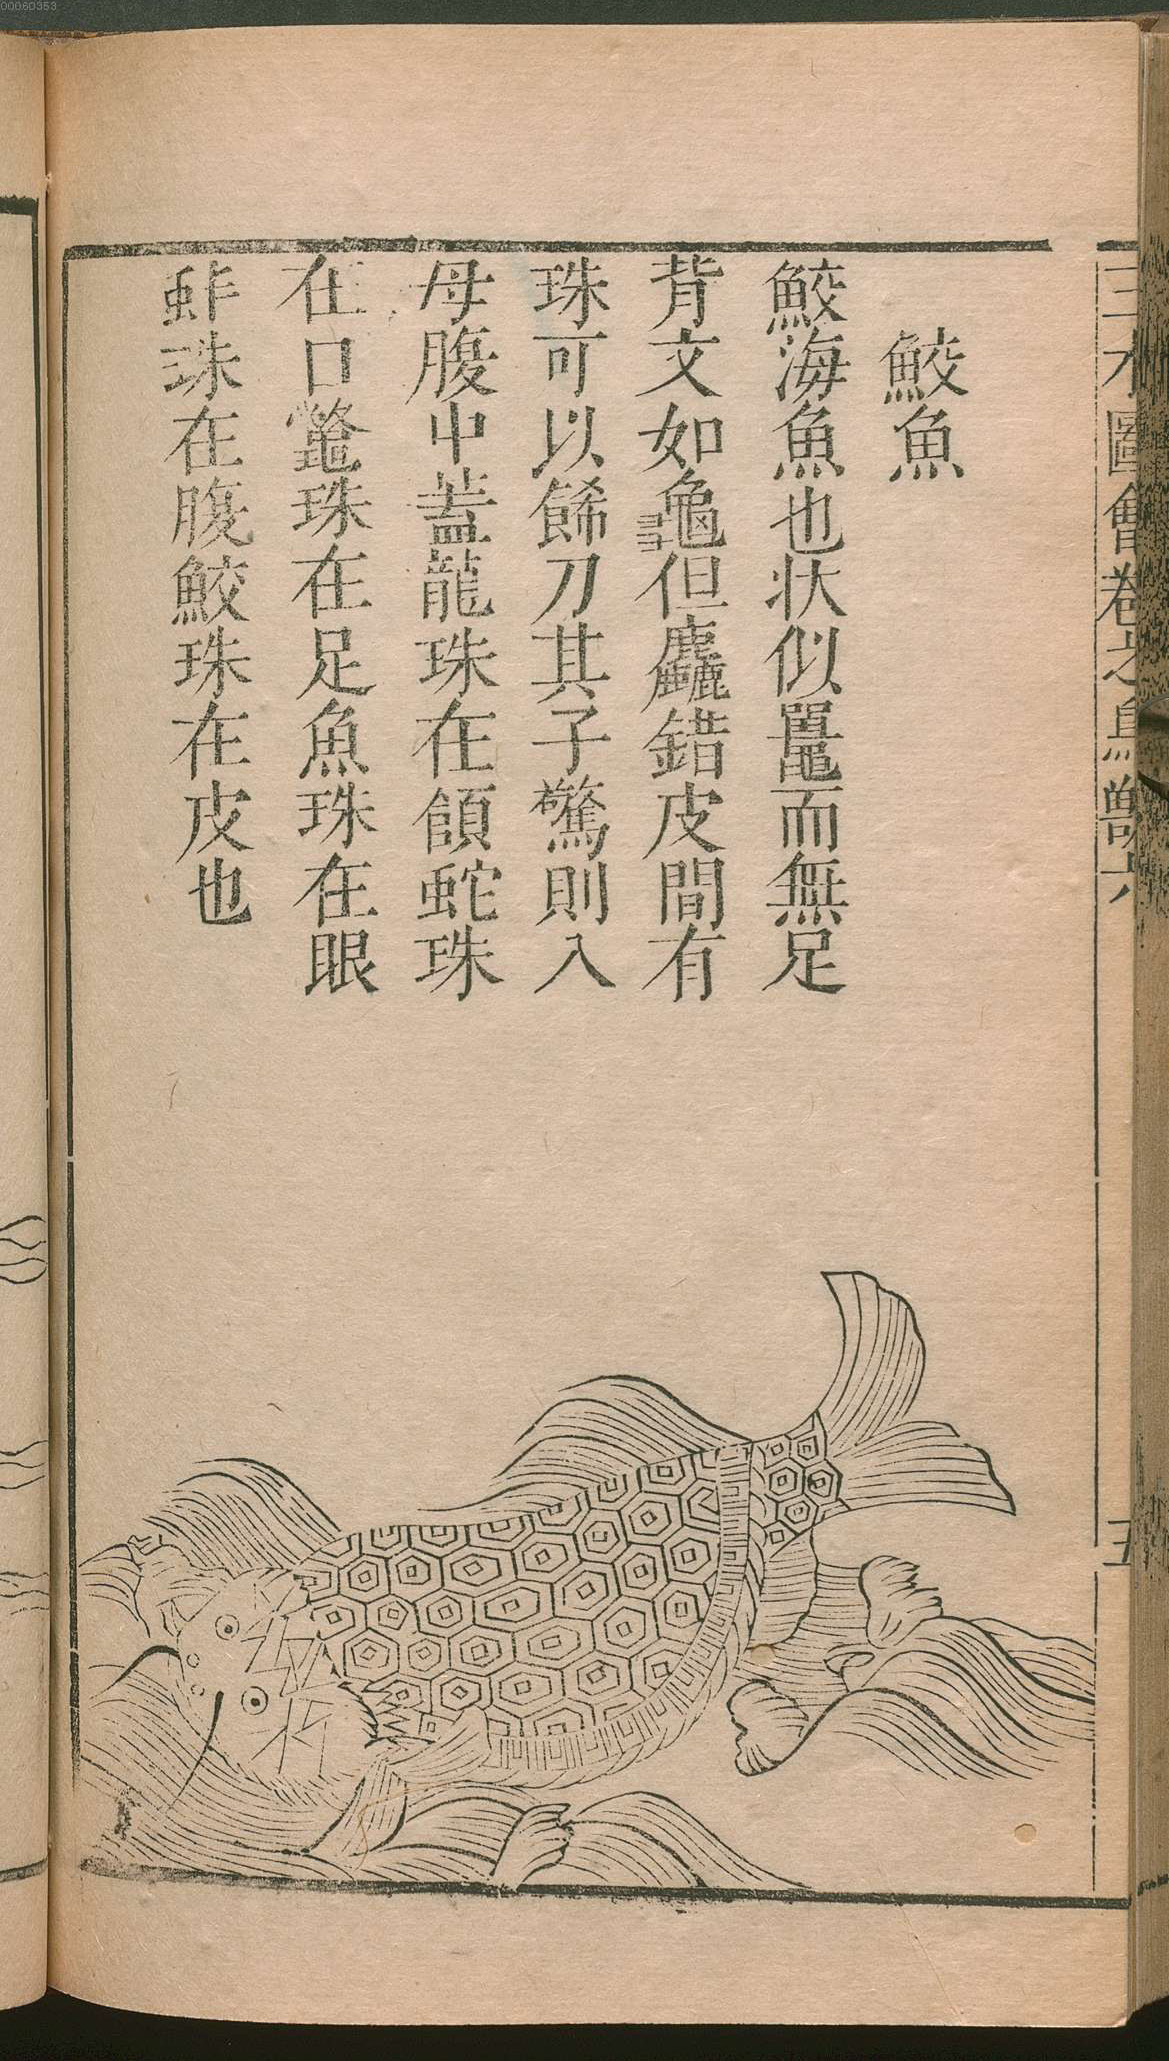 00060353
三才圖會卷之鳥獸六
五
鮫魚
鮫海魚也状似鼉而無足
背文如龜但麤錯皮間有
珠可以餙刀其子驚則入
母腹中蓋龍珠在頷蛇珠
在口鼈珠在足魚珠在眼
蚌珠在腹鮫珠在皮也